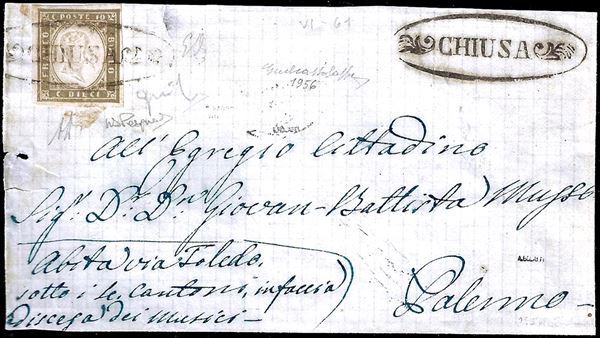 C. POSTE 10
FRANCO
BOLLO
C. DIECI
CHIUSA
VI - 61
CHIUSA
1956
All'Egregio Cittadino
Sigr. Dr. Dn. Giovan-Battista Musso
Abita via Toledo
sotto i le Cantoni, in faccia
discesa dei Musici -
Palermo -